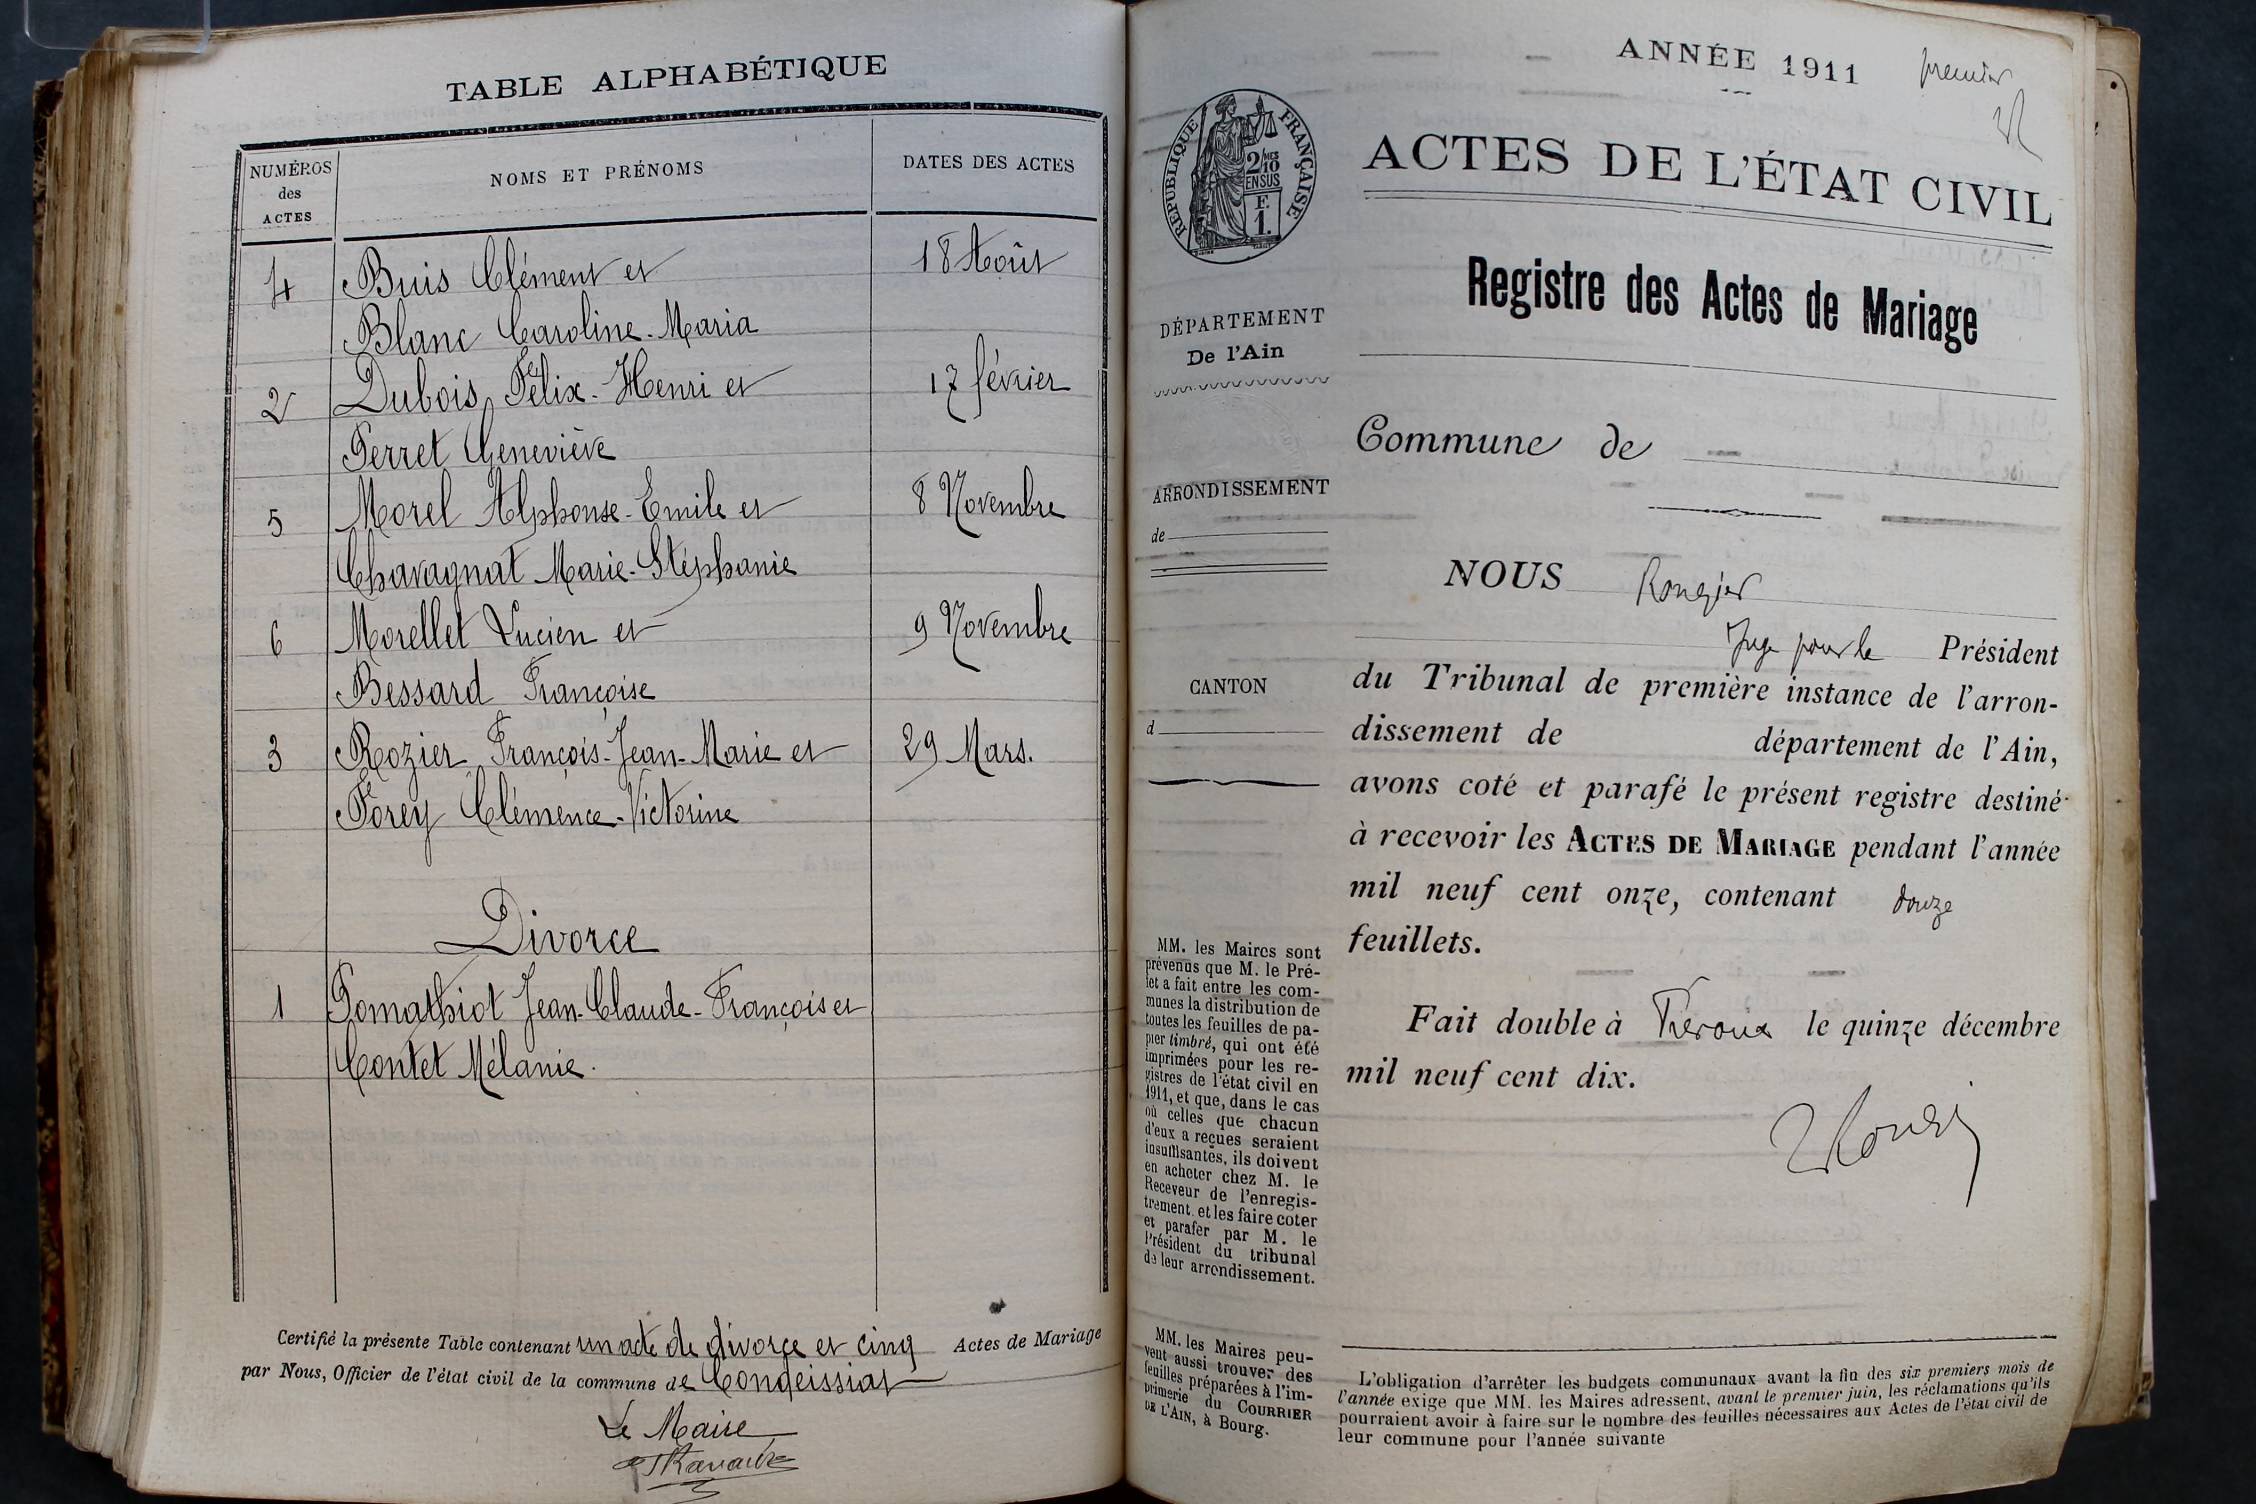 TABLE ALPHABÉTIQUE
NUMÉROS des ACTES NOMS ET PRÉNOMS DATES DES ACTES
4 Buis Clément et 18 Août
Blanc Caroline-Maria
2 Dubois Félix-Henri et 17 février
Perret Geneviève
5 Morel Alphonse-Emile et 8 Novembre
Chavagnat Marie-Stéphanie
6 Morellet Lucien et 9 Novembre
Bessard Françoise
3 Rozier François-Jean-Marie et 29 Mars.
Forey Clémence-Victorine
Divorce
1 Pomathiot Jean-Claude-François et
Contet Mélanie.
Certifié la présente Table contenant un acte de divorce et cinq Actes de Mariage
par Nous, Officier de l'état civil de la commune de Condeissiat
Le Maire
ANNÉE 1911 premier
RÉPUBLIQUE FRANÇAISE
2/10 MES
EN SUS
F.
1.
ACTES DE L'ÉTAT CIVIL
Registre des Actes de Mariage
DÉPARTEMENT
De l'Ain
Commune de
ARRONDISSEMENT
de
NOUS Rougier
Juge pour le Président
du Tribunal de première instance de l'arron-
dissement de département de l'Ain,
avons coté et parafé le présent registre destiné
à recevoir les ACTES DE MARIAGE pendant l'année
mil neuf cent onze, contenant douze
feuillets.
Fait double à Trévoux le quinze décembre
mil neuf cent dix.
CANTON
d
MM. les Maires sont
prévenus que M. le Pré-
fet a fait entre les com-
munes la distribution de
toutes les feuilles de pa-
pier timbré, qui ont été
imprimées pour les re-
gistres de l'état civil en
1911, et que, dans le cas
où celles que chacun
d'eux a reçues seraient
insuffisantes, ils doivent
en acheter chez M. le
Receveur de l'enregis-
trement. et les faire coter
et parafer par M. le
Président du tribunal
de leur arrondissement.
MM. les Maires peu-
vent aussi trouver des
feuilles préparées à l'im-
primerie du COURRIER
DE L'AIN, à Bourg.
L'obligation d'arrêter les budgets communaux avant la fin des six premiers mois de
l'année exige que MM. les Maires adressent, avant le premier juin, les réclamations qu'ils
pourraient avoir à faire sur le nombre des feuilles nécessaires aux Actes de l'état civil de
leur commune pour l'année suivante